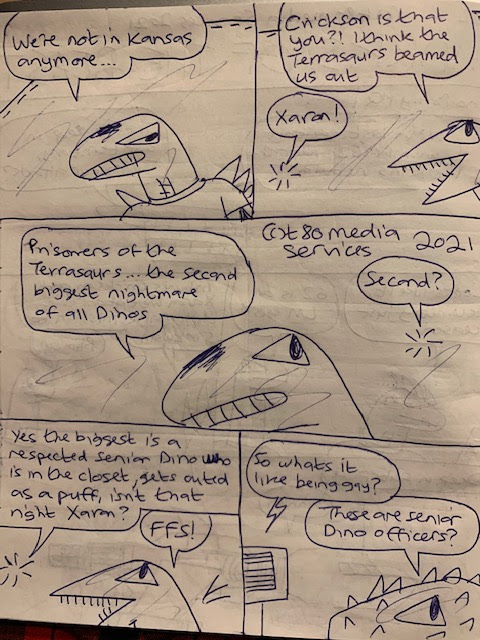 We're not in Kansas
anymore...
Crickson is that
you?! I think the
Terrasaurs beamed
us out
Xaron!
Prisoners of the
Terrasaurs... the second
biggest nightmare
of all Dinos
©t80 media
services 2021
Second?
Yes the biggest is a
respected senior Dino who
is in the closet, gets outed
as a puff, isn't that
right Xaron?
FFS!
So whats it
like being gay?
These are senior
Dino officers?